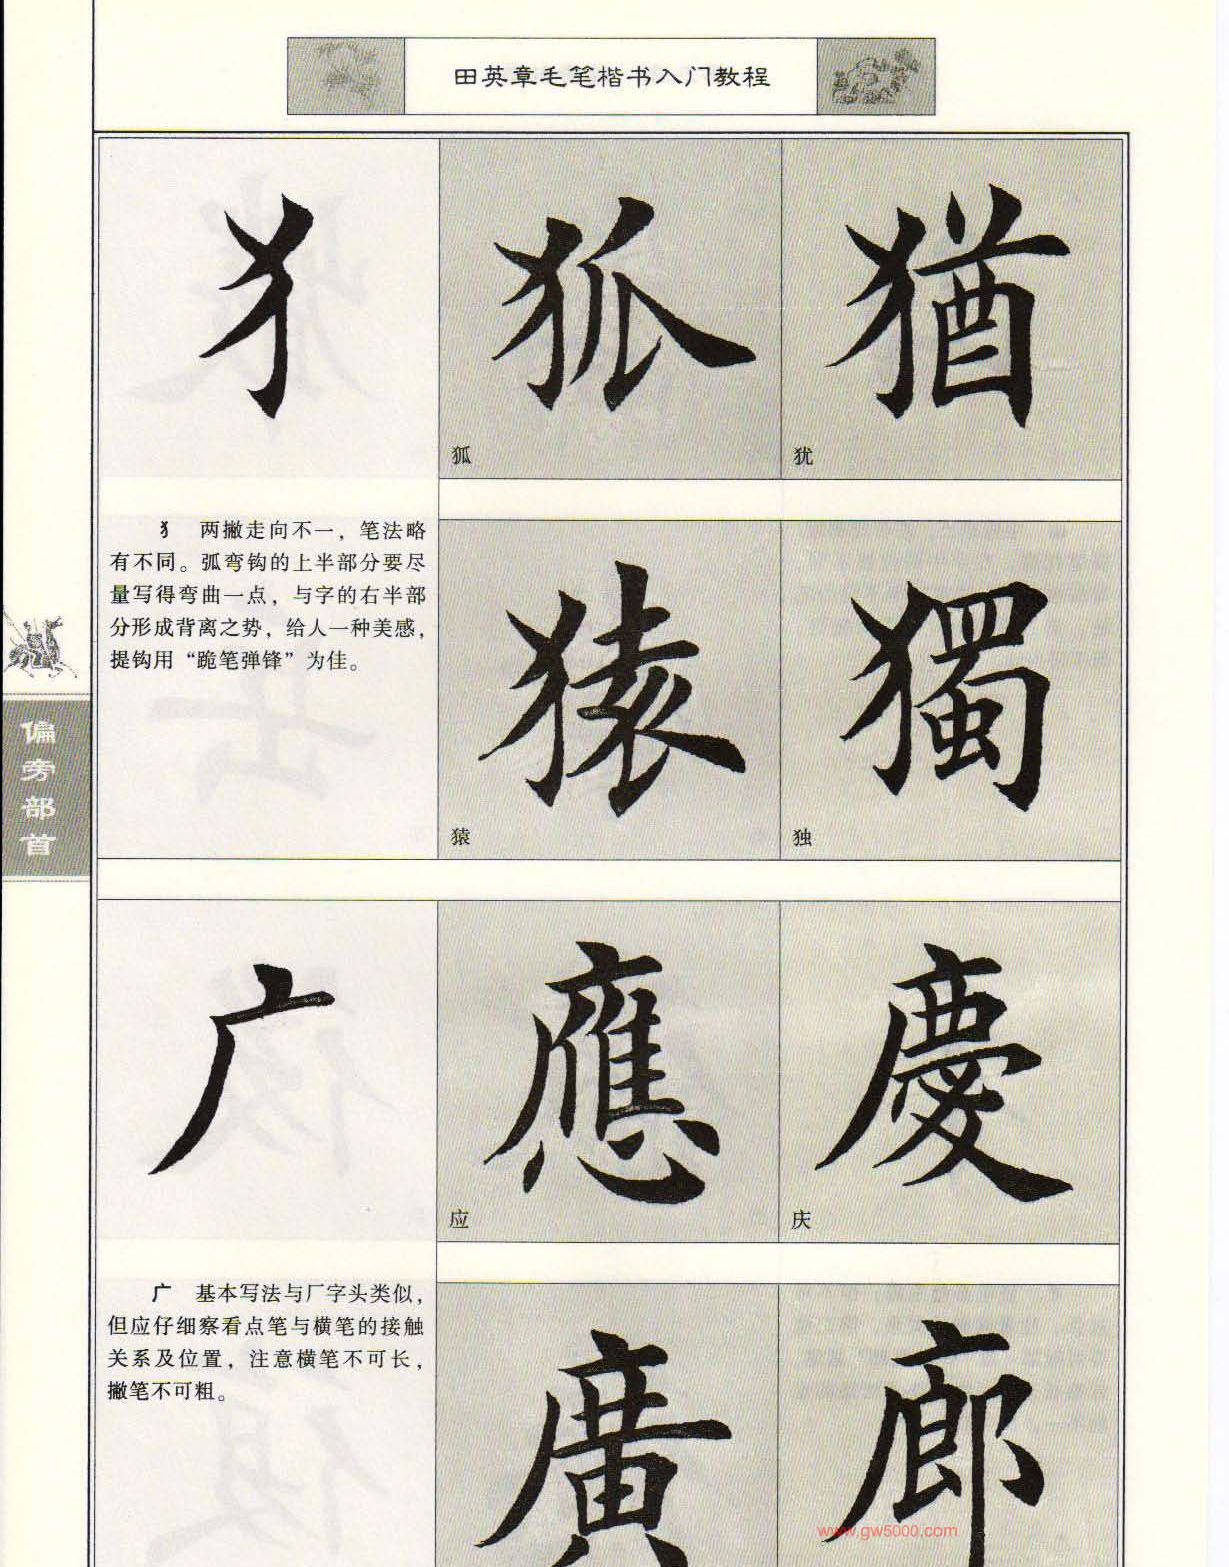 田英章毛笔楷书入门教程
犭
狐
狐
猶
犹
犭 两撇走向不一，笔法略
有不同。弧弯钩的上半部分要尽
量写得弯曲一点，与字的右半部
分形成背离之势，给人一种美感，
提钩用“跪笔弹锋”为佳。
猿
猿
獨
独
偏旁部首
广
應
应
慶
庆
广 基本写法与厂字头类似，
但应仔细察看点笔与横笔的接触
关系及位置，注意横笔不可长，
撇笔不可粗。
廣
廊
www.gw5000.com